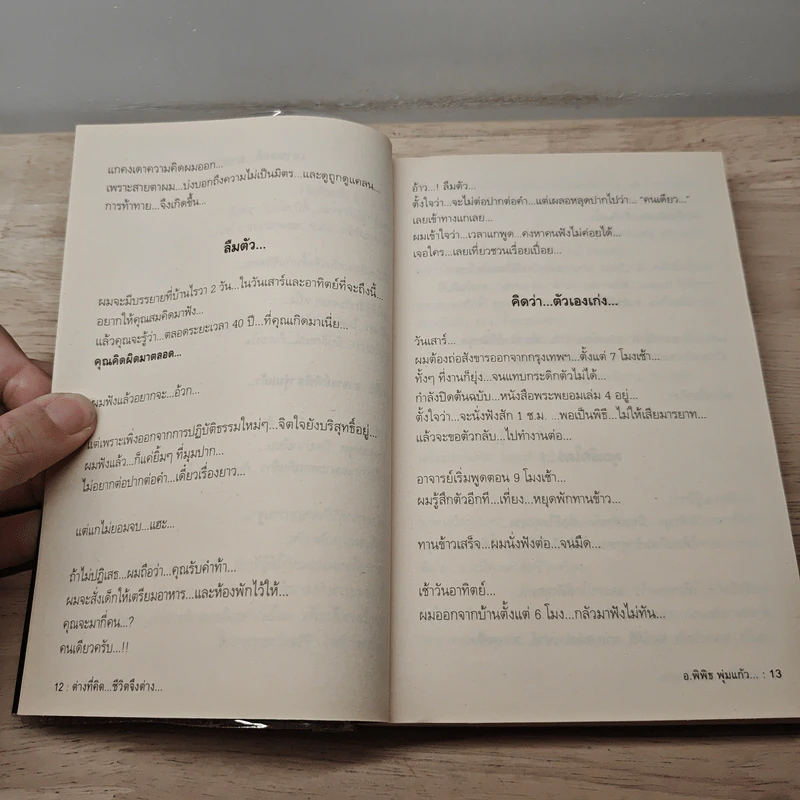 แกคงเดาความคิดผมออก...
เพราะสายตาผม...บ่งบอกถึงความไม่เป็นมิตร...และดูถูกดูแคลน...
การท้าทาย...จึงเกิดขึ้น...
ลืมตัว...
ผมจะมีบรรยายที่บ้านไรวา 2 วัน...ในวันเสาร์และอาทิตย์ที่จะถึงนี้...
อยากให้คุณสมคิดมาฟัง...
แล้วคุณจะรู้ว่า...ตลอดระยะเวลา 40 ปี...ที่คุณเกิดมาเนี่ย...
คุณคิดผิดมาตลอด...
ผมฟังแล้วอยากจะ...อ้วก...
แต่เพราะเพิ่งออกจากการปฏิบัติธรรมใหม่ๆ...จิตใจยังบริสุทธิ์อยู่...
ผมฟังแล้ว...ก็แค่ยิ้มๆ ที่มุมปาก...
ไม่อยากต่อปากต่อคำ...เดี๋ยวเรื่องยาว...
แต่แกไม่ยอมจบ...แฮะ...
ถ้าไม่ปฏิเสธ...ผมถือว่า...คุณรับคำท้า...
ผมจะสั่งเด็กให้เตรียมอาหาร...และห้องพักไว้ให้...
คุณจะมากี่คน...?
คนเดียวครับ...!!
12 : ต่างที่คิด...ชีวิตจึงต่าง...
อ้าว...! ลืมตัว...
ตั้งใจว่า...จะไม่ต่อปากต่อคำ...แต่เผลอหลุดปากไปว่า... "คนเดียว..."
เลยเข้าทางแกเลย...
ผมเข้าใจว่า...เวลาแกพูด...คงหาคนฟังไม่ค่อยได้...
เจอใคร...เลยเที่ยวชวนเรื่อยเปื่อย...
คิดว่า...ตัวเองเก่ง...
วันเสาร์...
ผมต้องถ่อสังขารออกจากกรุงเทพฯ...ตั้งแต่ 7 โมงเช้า...
ทั้งๆ ที่งานก็ยุ่ง...จนแทบกระดิกตัวไม่ได้...
กำลังปิดต้นฉบับ...หนังสือพระพยอมเล่ม 4 อยู่...
ตั้งใจว่า...จะนั่งฟังสัก 1 ช.ม. ...พอเป็นพิธี...ไม่ให้เสียมารยาท...
แล้วจะขอตัวกลับ...ไปทำงานต่อ...
อาจารย์เริ่มพูดตอน 9 โมงเช้า...
ผมรู้สึกตัวอีกที...เที่ยง...หยุดพักทานข้าว...
ทานข้าวเสร็จ...ผมนั่งฟังต่อ...จนมืด...
เช้าวันอาทิตย์...
ผมออกจากบ้านตั้งแต่ 6 โมง...กลัวมาฟังไม่ทัน...
อ.พิพิธ พุ่มแก้ว... : 13